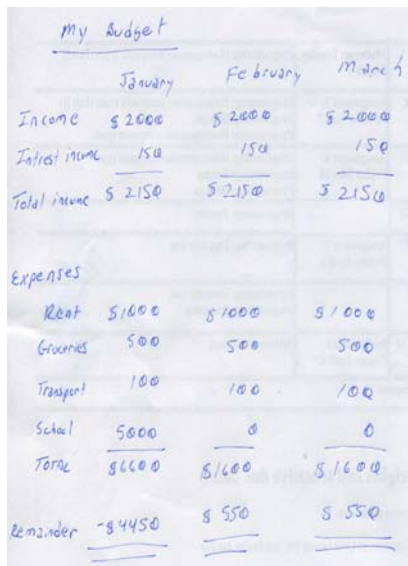 My Budget
January February March
Income $2000 $2000 $2000
Intrest income 150 150 150
Total income $2150 $2150 $2150
Expenses
Rent $1000 $1000 $1000
Groceries 500 500 500
Transport 100 100 100
School 5000 0 0
Total $6600 $1600 $1600
Remainder -$4450 $550 $550